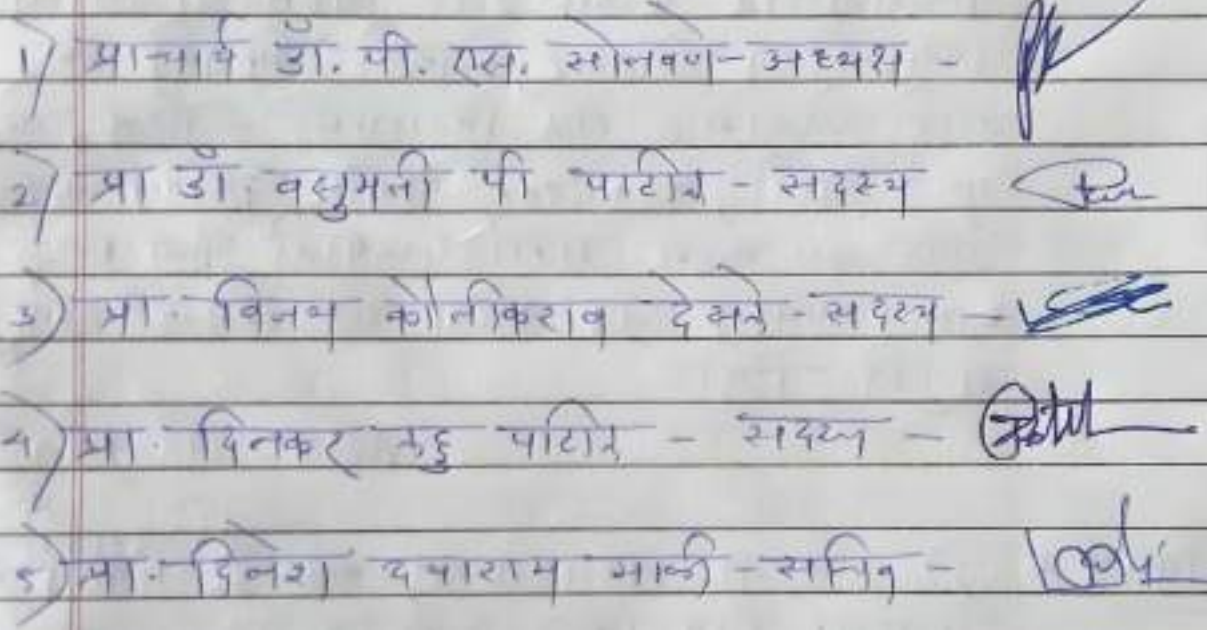 1) प्राचार्य डॉ. पी. एस. सोनवणे - अध्यक्ष -
2) प्रा डॉ. वसुमती पी पाटील - सदस्य
3) प्रा. विनय कौतीकराव देसले - सदस्य -
4) प्रा. दिनकर पाटील - सदस्य -
5) प्रा. दिनेश दयाराम माळी - सचिव -